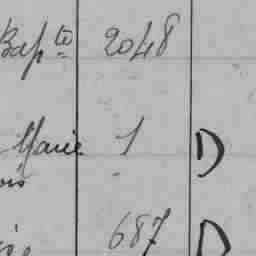 Bapte 2048
Marie 1 D
ois
687 D